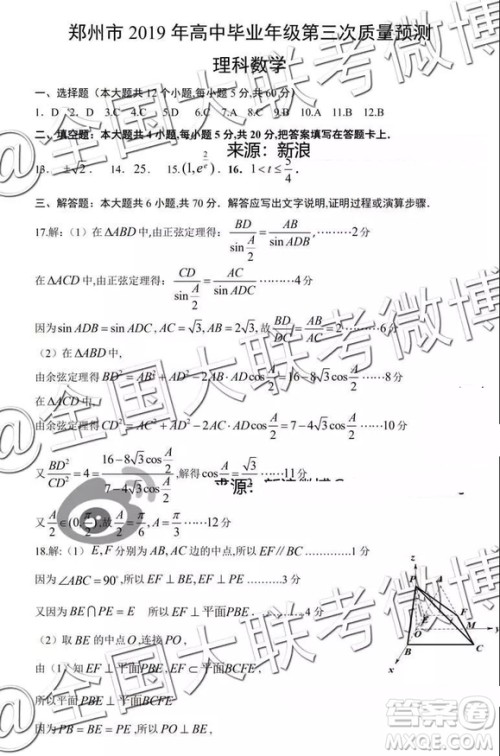 郑州市 2019 年高中毕业年级第三次质量预测
理科数学
一、选择题(本大题共12个小题,每小题5分,共60分)
1. D 2. D 3. C 4. 7. D 8. 9.B 10.A 11.D 12.C
二、填空题:本大题共4小题,每小题5分,共20分,把答案填写在答题卡上.
来源:新浪
13. ±√2. 14. 25. 15.(1, 16. 1 < t ≤ 5/4.
三、解答题:本大题共6小题,共70分.解答应写出文字说明,证明过程或演算步骤.
17.解:(1)在ΔABD中,由正弦定理得:BD/sin(A/2) = AB/sin ADB,………2分
在ΔACD中,由正弦定理得:CD/sin(A/2) = AC/sin ADC………4分
因为sin ADB = sin ADC, AC = √3, AB = 2√3, 故 BD/DC = AB/AC = 2………6分
(2)在ΔABD中,
由余弦定理得BD² = AB² + AD² − 2AB·AD cos(A/2) = 16 − 8√3 cos(A/2)……8分
在ΔACD中,
由余弦定理得CD² = AC² + AD² − 2AC·AD cos(A/2) = 7 − 4√3 cos(A/2)……10分
又 BD²/CD² = 4 = (16 − 8√3 cos(A/2))/(7 − 4√3 cos(A/2)), 解得cos(A/2) = √3/2.……11分
来源:
又 A/2 ∈ (0, π/2), 故 A/2 = π/6, A = π/3.……12分
18.解:(1)E,F分别为AB, AC边的中点,所以EF//BC…………1分
因为∠ABC = 90°,所以EF ⊥ BE, EF ⊥ PE………3分
又因为BE∩PE = E 所以EF ⊥ 平面PBE.…
(2)取BE的中点O,连接PO,
由(1)知EF ⊥ 平面PBE, EF ⊂ 平面BCFE,
所以平面PBE ⊥ 平面BCFE
因为PB = BE = PE,所以PO ⊥ BE,
z
P
A
E
F
O
M
y
B
C
x
@全国大联考微博
@全国大联考微博
@全国大联考微博
答案圈